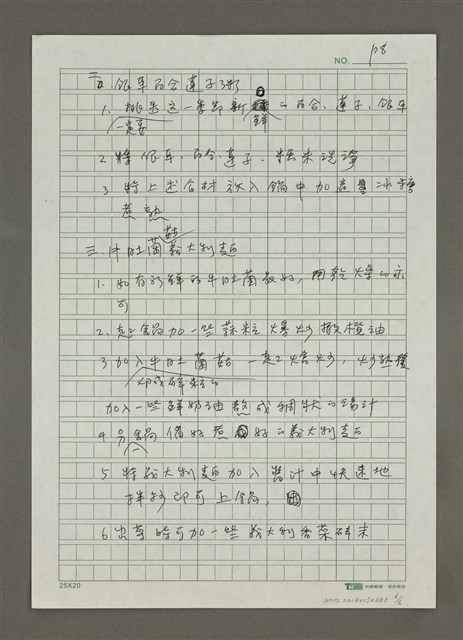 NO. p8
五 銀耳百合蓮子粥
1. 挑選這一季節新鮮的百合、蓮子、銀耳
一定要
2. 將銀耳、百合、蓮子、糯米洗淨
3. 將上述食材放入鍋中加適量冰糖
煮熟
三. 牛肚菌菇義大利麵
1. 如有新鮮的牛肚菌最好，用乾燥的亦
可
2. 起鍋加一些蒜粒爆炒橄欖油
3 加入牛肚菌菇一起煸炒，炒熟後
切成碎粒的
加入一些鮮奶油熬成稠狀的醬汁
4 另鍋備好煮好的義大利麵
5 將義大利麵加入醬汁中快速地
拌炒即可上鍋。
6 出菜時可加一些義大利香菜碎末
25X20